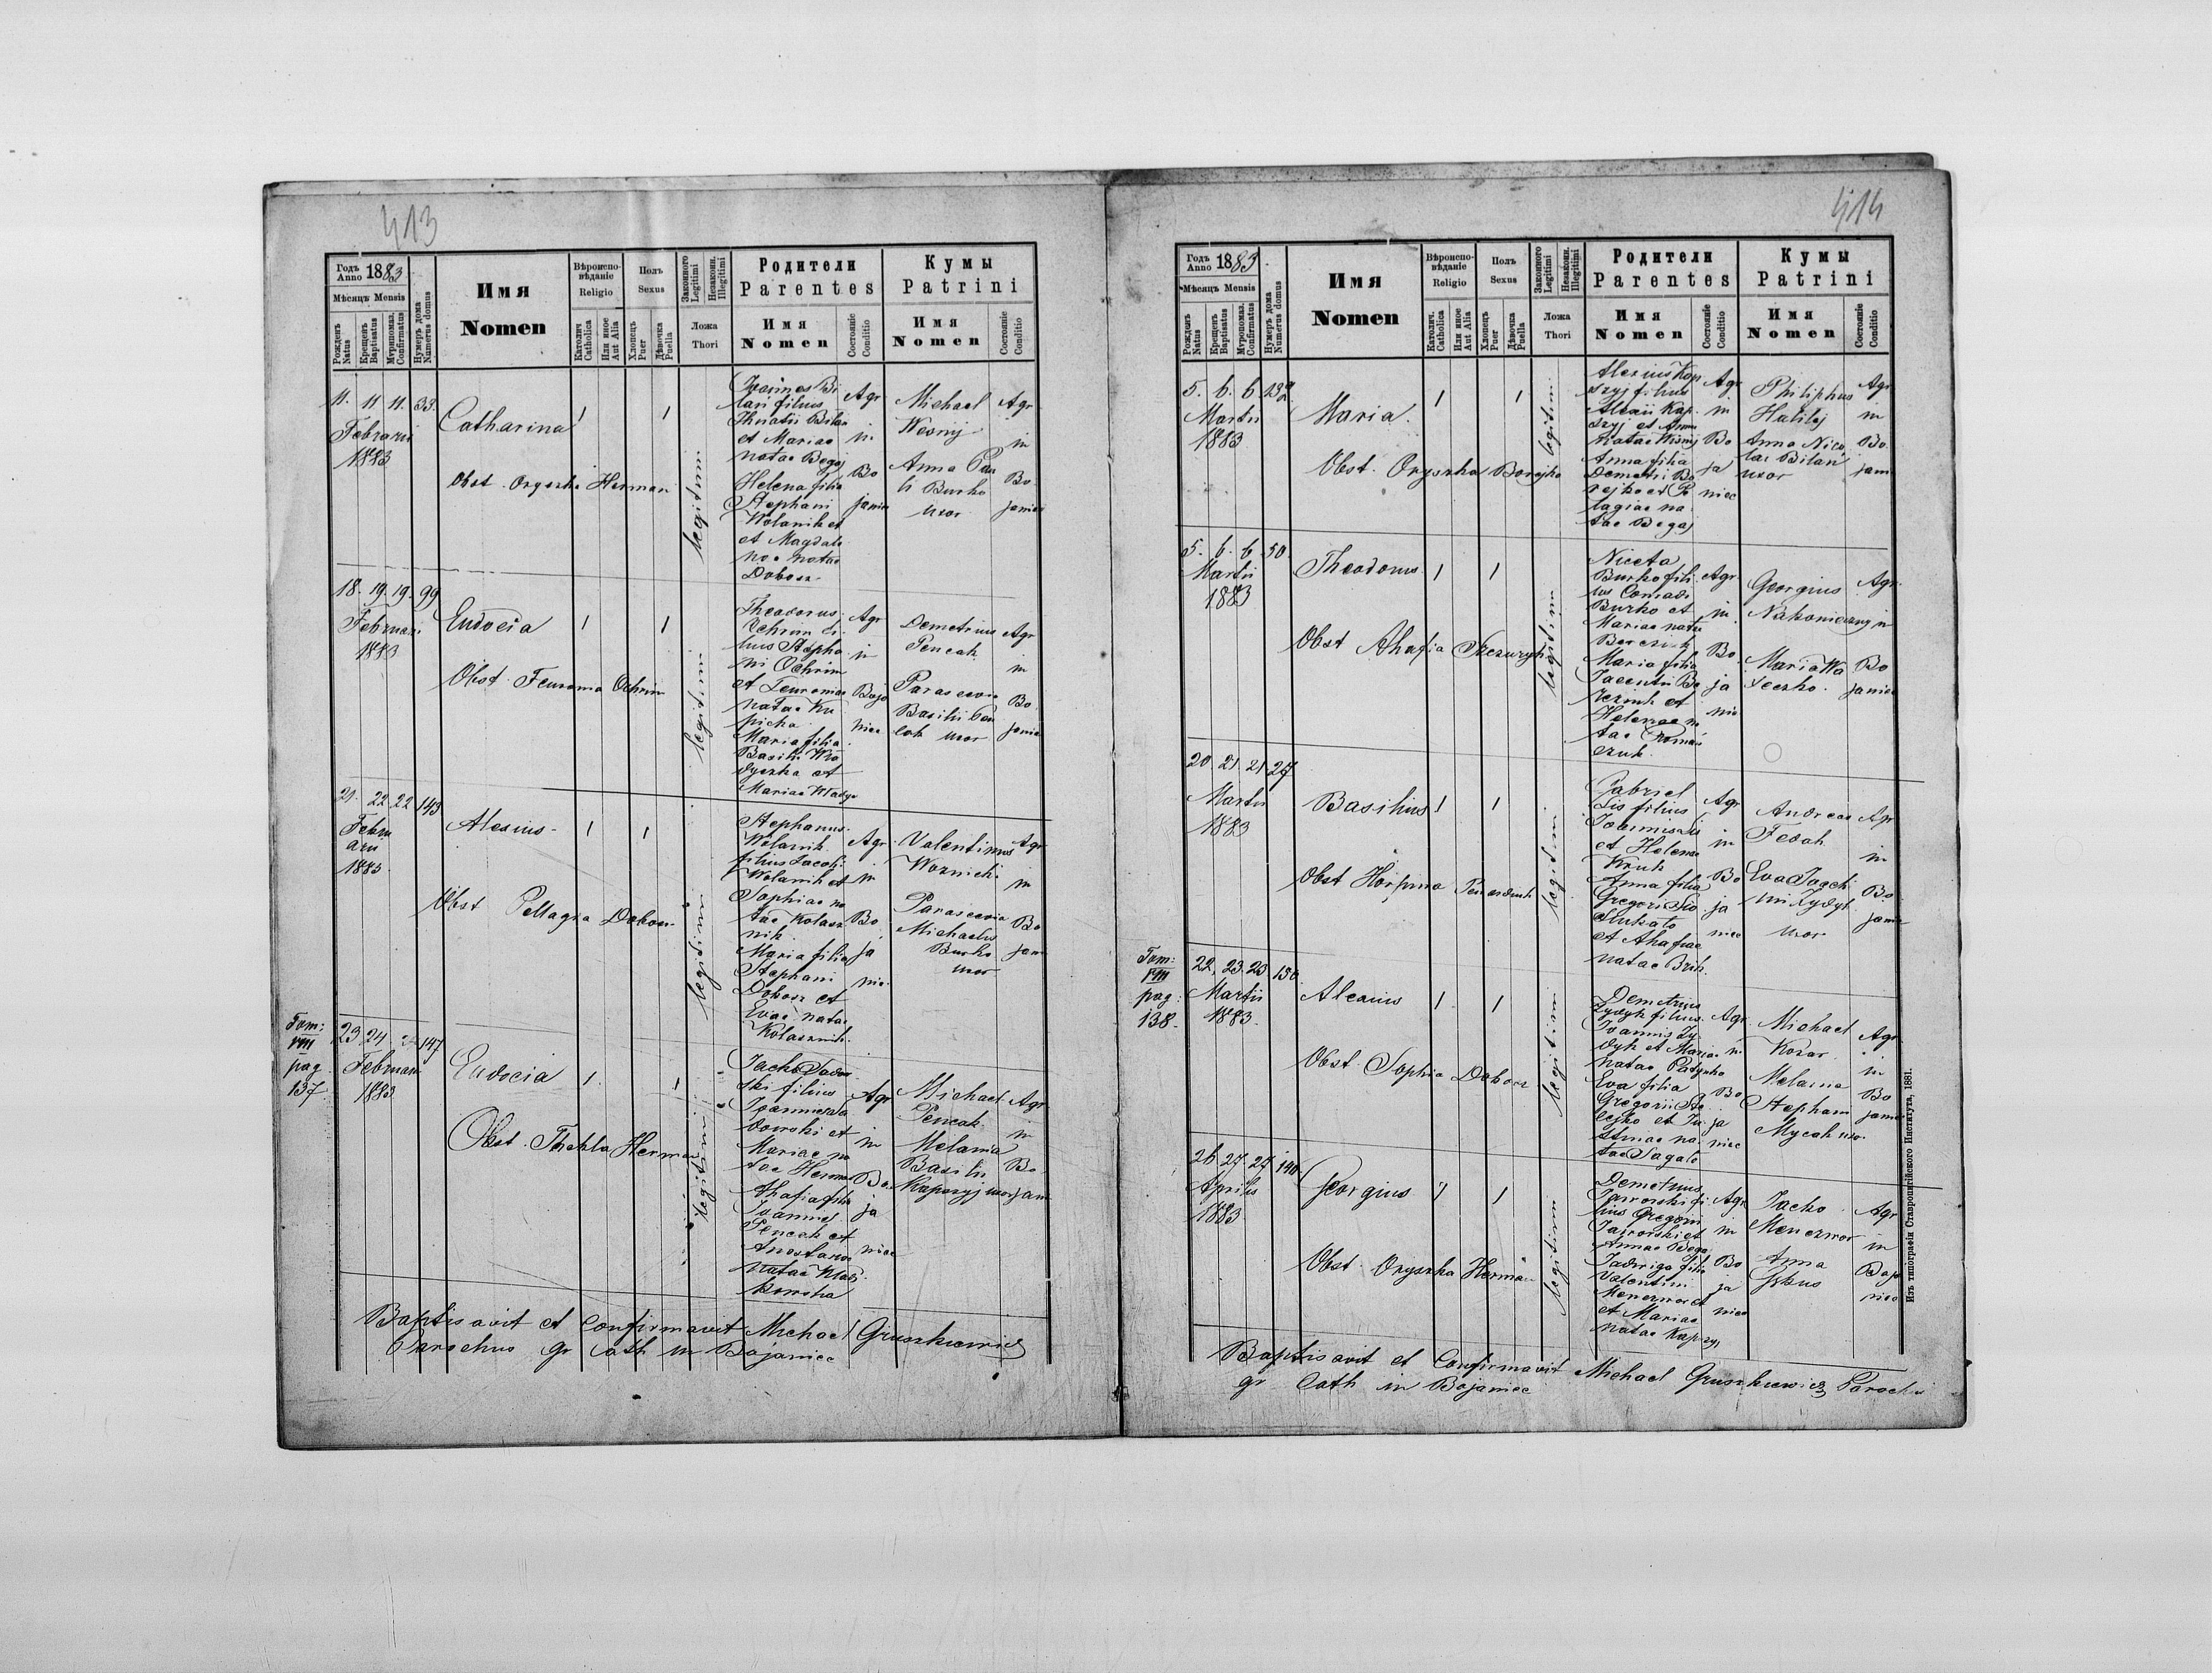 413
Годъ Anno 1883
Мѣсяцъ Mensis
Рожденъ Natus
Крещенъ Baptisatus
Мѵропомаз. Confirmatus
Нумеръ дома Numerus domus
Имя
Nomen
Вѣроиспо-вѣданіе
Religio
Католич Catholica
Или иное Aut Alia
Полъ
Sexus
Хлопецъ Puer
Дѣвочка Puella
Законного Legitimi
Незаконн. Illegitimi
Ложа
Thori
Родители
Parentes
Имя
Nomen
Состояніе Conditio
Кумы
Patrini
Имя
Nomen
Состояніе Conditio
11. 11 11. 33.
Februarii
1883
Catharina
Obst. Oryszka Herman
legitimi
Joannes Bi
lan filius
Ihnatii Bilan
et Mariae
natae Begej
Helena filia
Stephani
Wolanik et
et Magdale
nae natae
Dobosz
Agr
in
Bo
janiec
Michael
Wesnij
Anna Pau
li Burko
uxor
Agr
in
Bo
janiec
18. 19. 19. 99
Februarii
1883
Eudocia
Obst. Feuronia Ochrim
legitimi
Theodorus
Ochrim fi
lius Stepha
ni Ochrim
et Feuroniae
natae Ku
picha
Maria filia
Basilii Wło
dyczka et
Mariae
Agr
in
Boja
niec
Demetrius
Pencak
Parascevia
Basilii Pen
cak uxor
Agr
in
Bo
janiec
21. 22 22 143
Febru
arii
1883
Alexius
Obst Pellagia Dobosz
legitimi
Stephanus
Wolanik
filius Jacobi
Wolanik et
Sophiae na
tae Kolasz
nik
Maria filia
Stephani
Dobosz et
Evae natae
Kolasznik
Agr
in
Bo
ja
niec
Valentinus
Woznicki
Parascevia
Michaelis
Burko
uxor
Agr
in
Bo
jan
Tom:
VIII
pag
137
23 24 24 147
Februarii
1883
Eudocia
Obst. Thekla Herman
legitimi
Jacko Sadow
ski filius
Joannis Sa
dowski et
Mariae na
tae Herman
Ahafia filia
Joannis
Pencak et
Anastasiae
natae
kowska
Agr
in
Bo
ja
niec
Michael
Pencak
Melania
Basilii
Kapszyj uxor
Agr
in
Bo
jan
Baptisavit et Confirmavit Michael Gruszkiewicz
Parochus gr cath in Bojaniec
414
Годъ Anno 1883
Мѣсяцъ Mensis
Рожденъ Natus
Крещенъ Baptisatus
Мѵропомаз. Confirmatus
Нумеръ дома Numerus domus
Имя
Nomen
Вѣроиспо-вѣданіе
Religio
Католич. Catholica
Или иное Aut Alia
Полъ
Sexus
Хлопецъ Puer
Дѣвочка Puella
Законного Legitimi
Незаконн. Illegitimi
Ложа
Thori
Родители
Parentes
Имя
Nomen
Состояніе Conditio
Кумы
Patrini
Имя
Nomen
Состояніе Conditio
5. 6. 6 132
Martii
1883
Maria.
Obst. Oryszka Borejko
legitimi
Alexius Kap
szyj filius
Alexii Kap
szyj et Annae
natae Wisnij
Anna filia
Demetrii Bo
rejko et Pe
lagiae na
tae Begej
Agr
in
Bo
ja
niec
Philiphus
Halibij
Anna Nico
lai Bilan
uxor
Agr
in
Bo
jani
5. 6. 6. 50.
Martii
1883
Theodorus
Obst Ahafia
legitimi
Niceta
Burko fili
us Conradi
Burko et
Mariae natae
Maria filia
Jacentii Be
et
Helenae na
tae Roman
czuk.
Agr
in
Bo
ja
nie
Georgius
Nakonieczny
Maria Wa
seczko.
Agr
in
Bo
janiec
20 21 21 27
Martii
1883
Basilius
Obst Horpina
legitimi
Gabriel
Lis filius
Joannis Lis
et Helenae
Kruk
Anna filia
Gregorii Slo
et Ahafiae
natae Bzik.
Agr
in
Bo
ja
niec
Andreas
Fedak
Eva Joach
imi Zydyk
uxor
Agr
in
Bo
janie
Tom:
VIII
pag:
138.
22. 23. 23 150
Martii
1883.
Alexius
Obst. Sophia Dobosz
legitimi
Demetrius
Zydyk filius
Joannis Zy
dyk et Mariae
natae Patynko
Eva filia
Gregorii Se
lejko et Ju
stinae na
tae Jagalo
Agr
in
Bo
ja
niec
Michael
Kozar
Melania
Stephani
Mycak uxor
Agr
in
Bo
janie
26 27 27 140.
Aprilis
1883
Georgius
Obst. Oryszka Herman
legitimi
Demetrius
Jaworski fi
lius Gregorii
Jaworski et
Annae Bega
Jadwiga filia
Valentini
et Mariae
natae Kapszyj
Agr
in
Bo
ja
niec
Jacko
Anna
Agr
in
Boja
niec
Baptisavit et Confirmavit Michael Gruszkiewicz Paroch
gr Cath in Bojaniec
Изъ типографіи Ставропигійского Института, 1881.